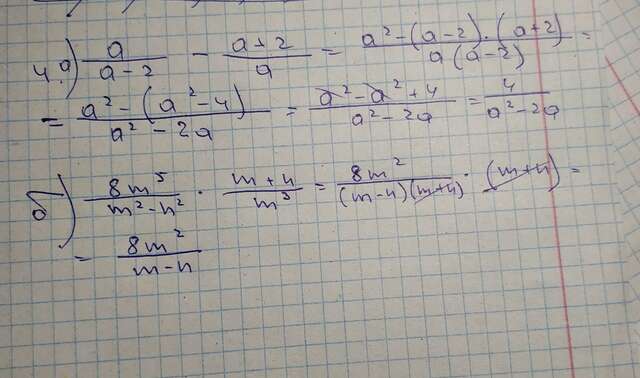 4.а) a/(a-2) - (a+2)/a = (a²-(a-2)·(a+2))/(a(a-2)) =
= (a²-(a²-4))/(a²-2a) = (a²-a²+4)/(a²-2a) = 4/(a²-2a)
б) 8m⁵/(m²-n²) · (m+n)/m³ = 8m²/((m-n)(m+n)) · (m+n) =
= 8m²/(m-n)